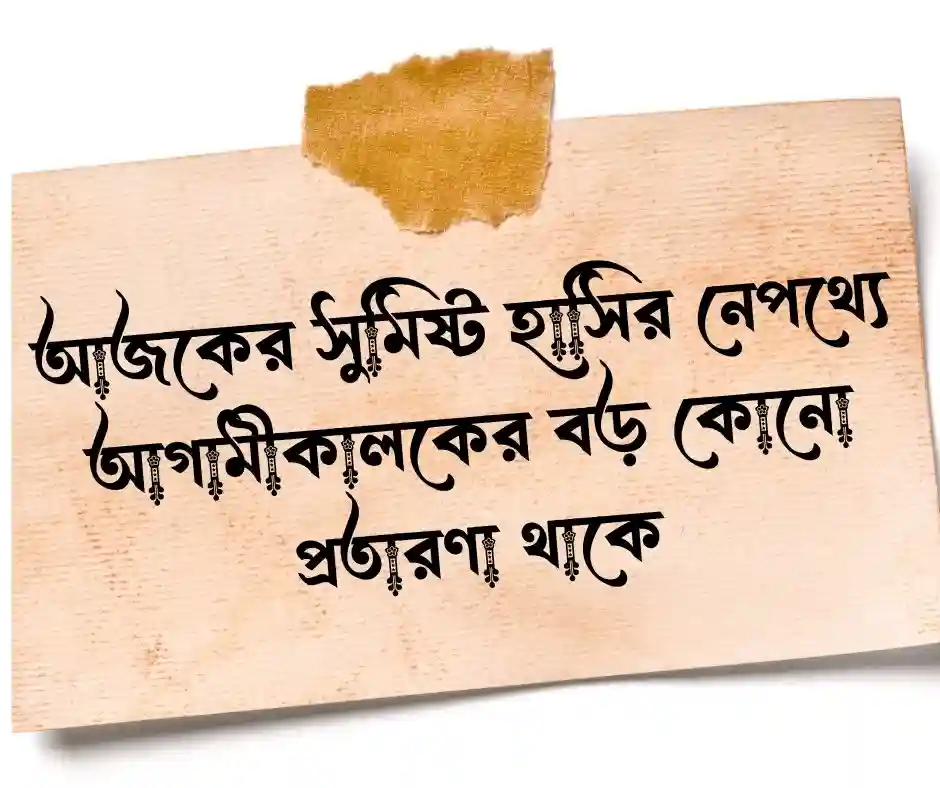 আজকের সুমিষ্ট হাসির নেপথ্যে
আগামীকালকের বড় কোনো
প্রতারণা থাকে